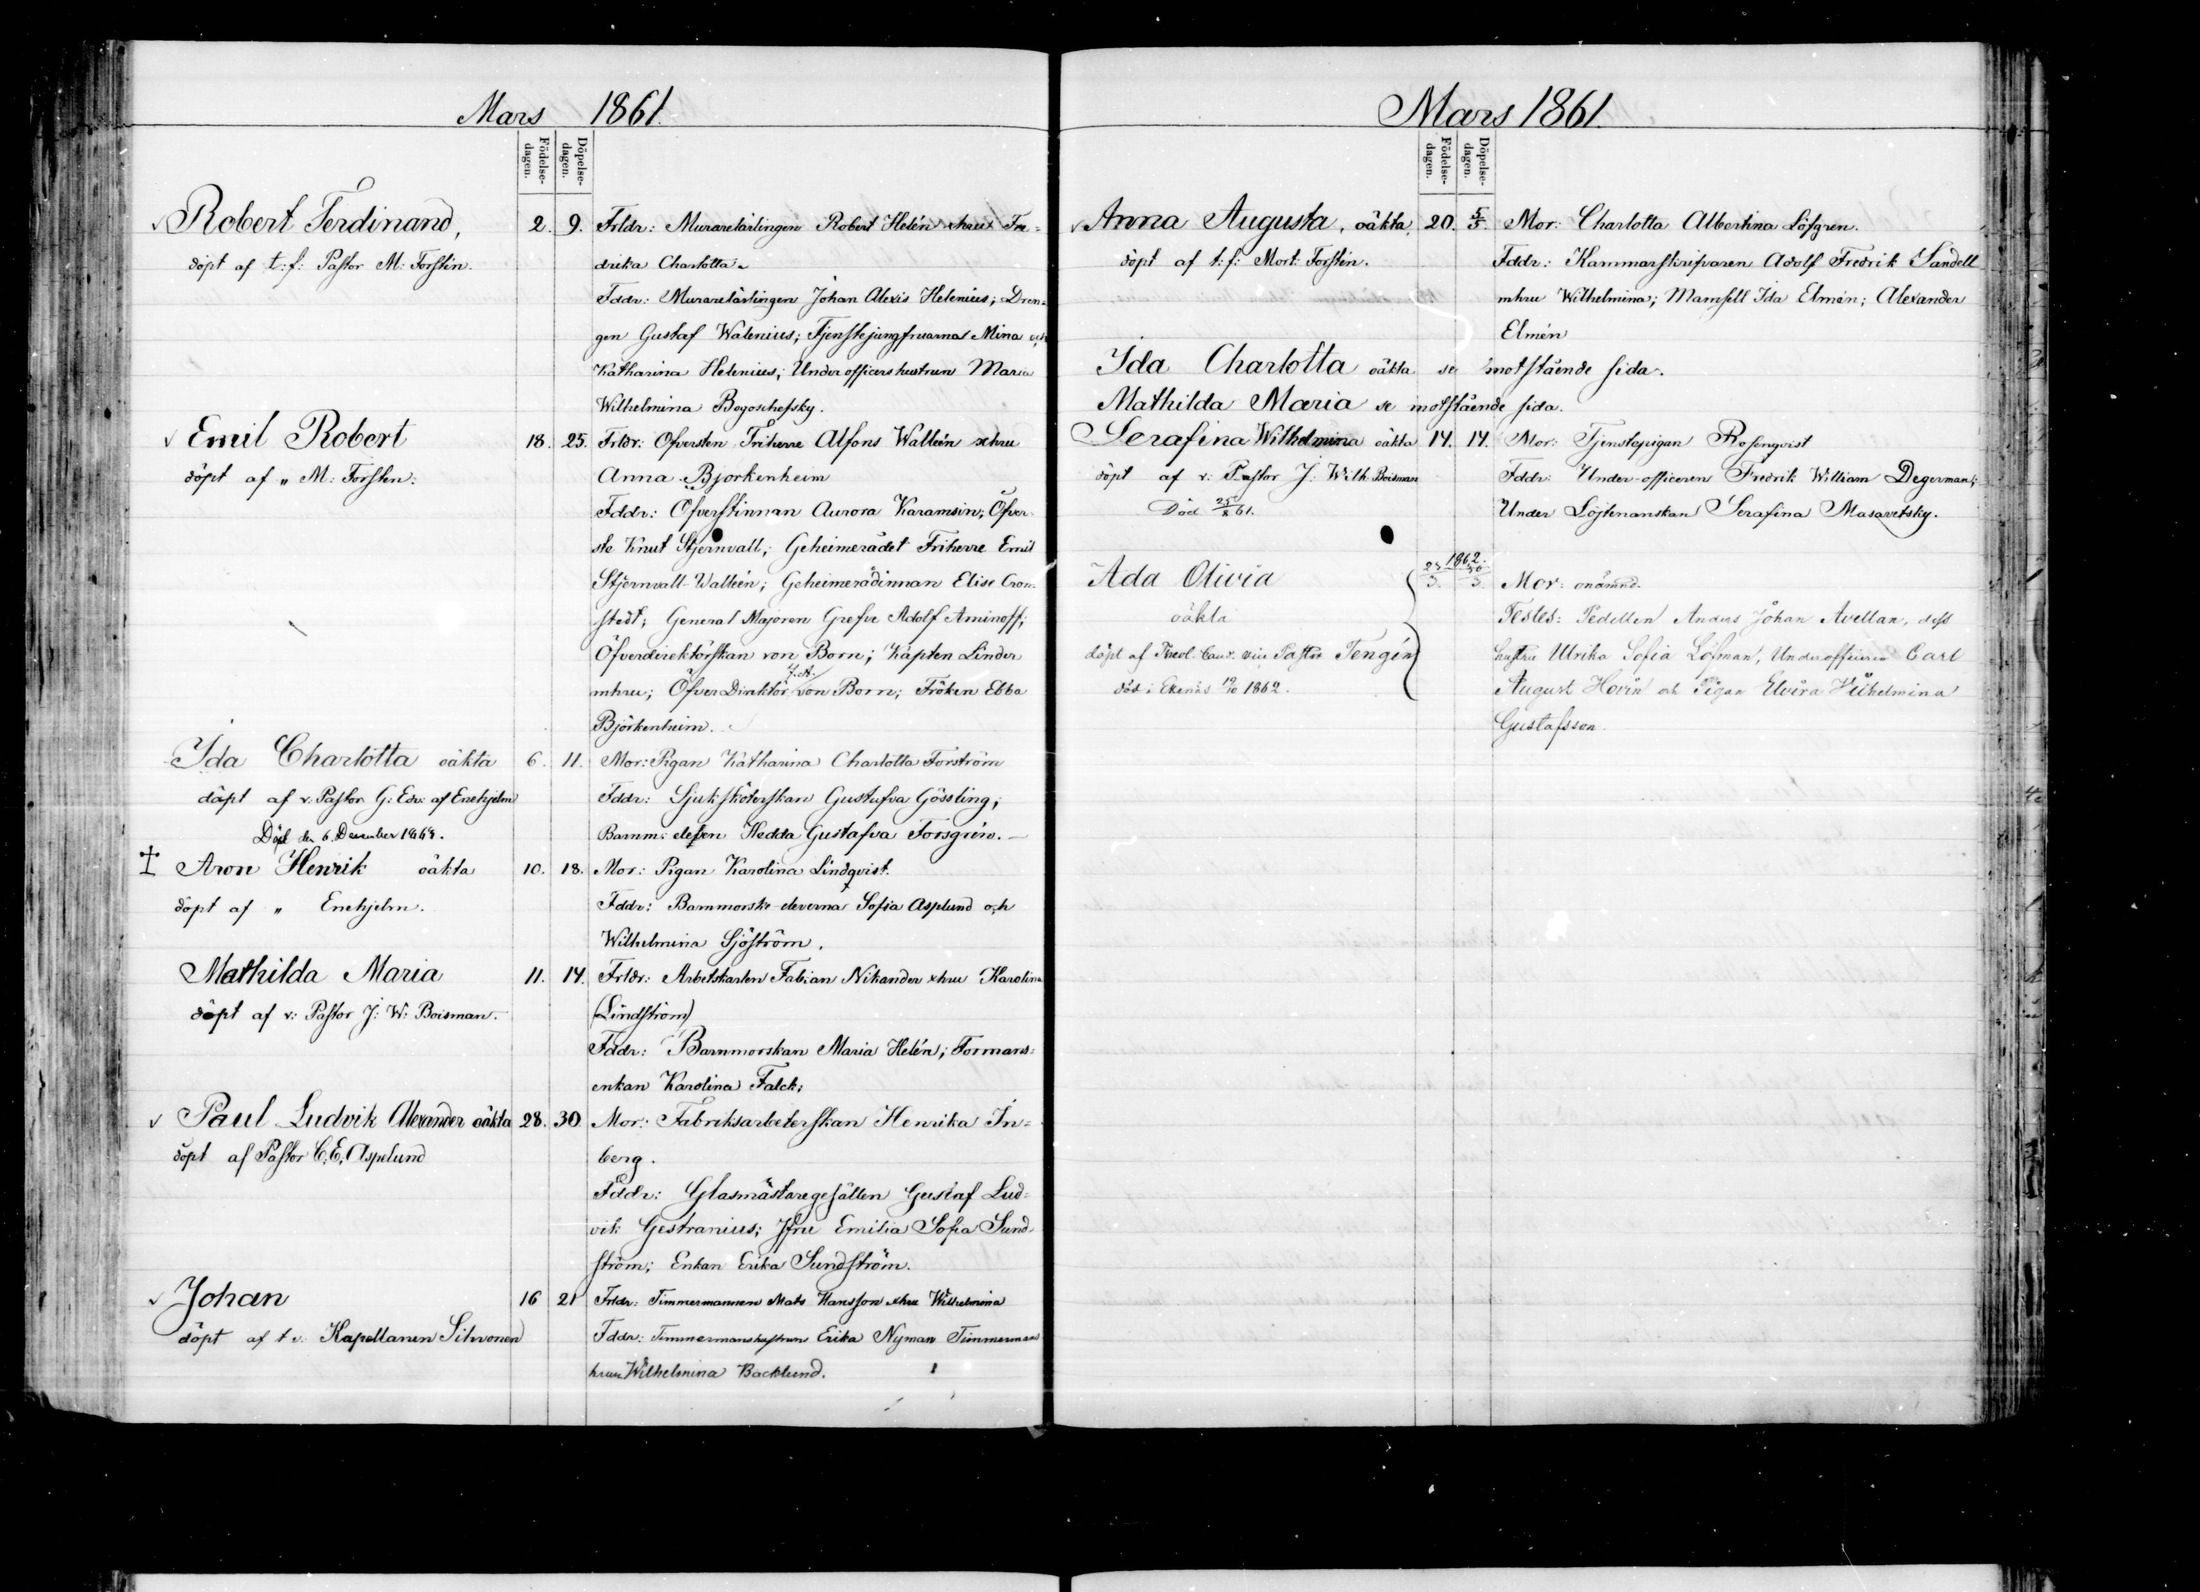 Mars 1861.
Födelse-
dagen.
Döpelse-
dagen.
Robert Ferdinand, 2. 9. Frldr: Murarelärlingen Robert Helén xhru Fre=
döpt af t:f: Pastor M: Forstén. drika Charlotta
Fddr: Murarelärlingen Johan Alexis Helenius; Dren=
gen Gustaf Walenius; Tjenstejungfruarna Mina och
Katharina Helenius; Under officers hustrun Maria
Wilhelmina Bogoschefsky.
Emil Robert 18. 25. Frldr: Öfversten Friherre Alfons Walleén xhru
döpt af " M: Forstén: Anna Björkenheim
Fddr: Öfverstinnan Aurora Karamsin; Öfver-
ste Knut Stjernvall; Geheimerådet Friherre Emil
Stjernvall-Walleén; Geheimerådinnan Elise Cron-
stedt; General Majoren Grefve Adolf Aminoff;
Öfverdirektörskan von Born; Kapten Linder
mhru; Öfver Direktör V.A. von Born; Fröken Ebba
Björkenheim.
Ida Charlotta oäkta 6. 11. Mor: Pigan Katharina Charlotta Forström
döpt af v: Pastor G: Edv: af Enehjelm Fddr: Sjuksköterskan Gustafva Gössling;
Död den 6. December 1868. Barnm: eleven Hedda Gustafva Forsgrén.
† Aron Henrik oäkta 10. 18. Mor: Pigan Karolina Lindqvist.
döpt af " Enehjelm. Fddr: Barnmorske-eleverna Sofia Asplund och
Wilhelmina Sjöström.
Mathilda Maria 11. 14. Frldr: Arbetskarlen Fabian Nikander xhru Karolina
döpt af v: Pastor J: W: Boisman. (Lindström)
Fddr: Barnmorskan Maria Helén; Formans=
enkan Karolina Falck;
Paul Ludvik Alexander oäkta 28. 30 Mor: Fabriksarbeterskan Henrika In=
döpt af Pastor C.E. Aspelund berg.
Fddr: Glasmästaregesällen Gustaf Lud=
vik Gestranius; Jfru Emilia Sofia Sund-
ström; Enkan Erika Sundström.
Johan 16 21 Frldr: Timmermannen Mats Hansson xhru Wilhelmina
döpt af t v: Kapellanen Sihvonen Fddr: Timmermanshustrun Erika Nyman Timmermans
hrun Wilhelmina Backlund.
Mars 1861.
Födelse-
dagen.
Döpelse-
dagen.
Anna Augusta, oäkta. 20. 5/5. Mor: Charlotta Albertina Löfgren.
döpt af t:f: Mort: Forstén. Fddr: Kammarskrifvaren Adolf Fredrik Sandell
mhru Wilhelmina; Mamsell Ida Elmén; Alexander
Elmén
Ida Charlotta oäkta se motstående sida.
Mathilda Maria se motstående sida.
Serafina Wilhelmina oäkta 14. 14. Mor: Tjenstepigan Rosenqvist
döpt af v: Pastor J: Wilh. Boisman Fddr: Under-officeren Fredrik William Degerman;
Död 25/8 61. Under Löjtenanskan Serafina Masavetsky.
1862.
Ada Olivia 23/3. 30/3. Mor: onämnd.
oäkta Testes: Pedellen Anders Johan Avellan, dess
döpt af Theol. Cand. vice Pastor Tengén hustru Ulrika Sofia Löfman, Underofficeren Carl
död i Ekenäs 19/10 1862. August Hovén och Pigan Elvira Wilhelmina
Gustafsson.